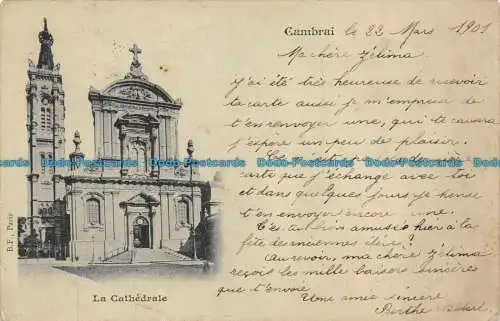 Cambrai le 22 Mars 1901
Ma chère Zélima
J'ai été très heureuse de recevoir
ta carte aussi je m'empresse de
t'en renvoyer une, qui te causera
j'espère un peu de plaisir.
carte que j'échange avec toi
et dans quelques jours je pense
t'en envoyer encore une.
T'es-tu bien amusée hier à la
fête des miennes
Au revoir, ma chère Zélima
reçois les mille baisers sincères
que t'envoie
Une amie sincère
Berthe
B.F., Paris
La Cathédrale
Dodo-Postcards Dodo-Postcards Dodo-Postcards Dodo-Postcards Dodo-Postcards